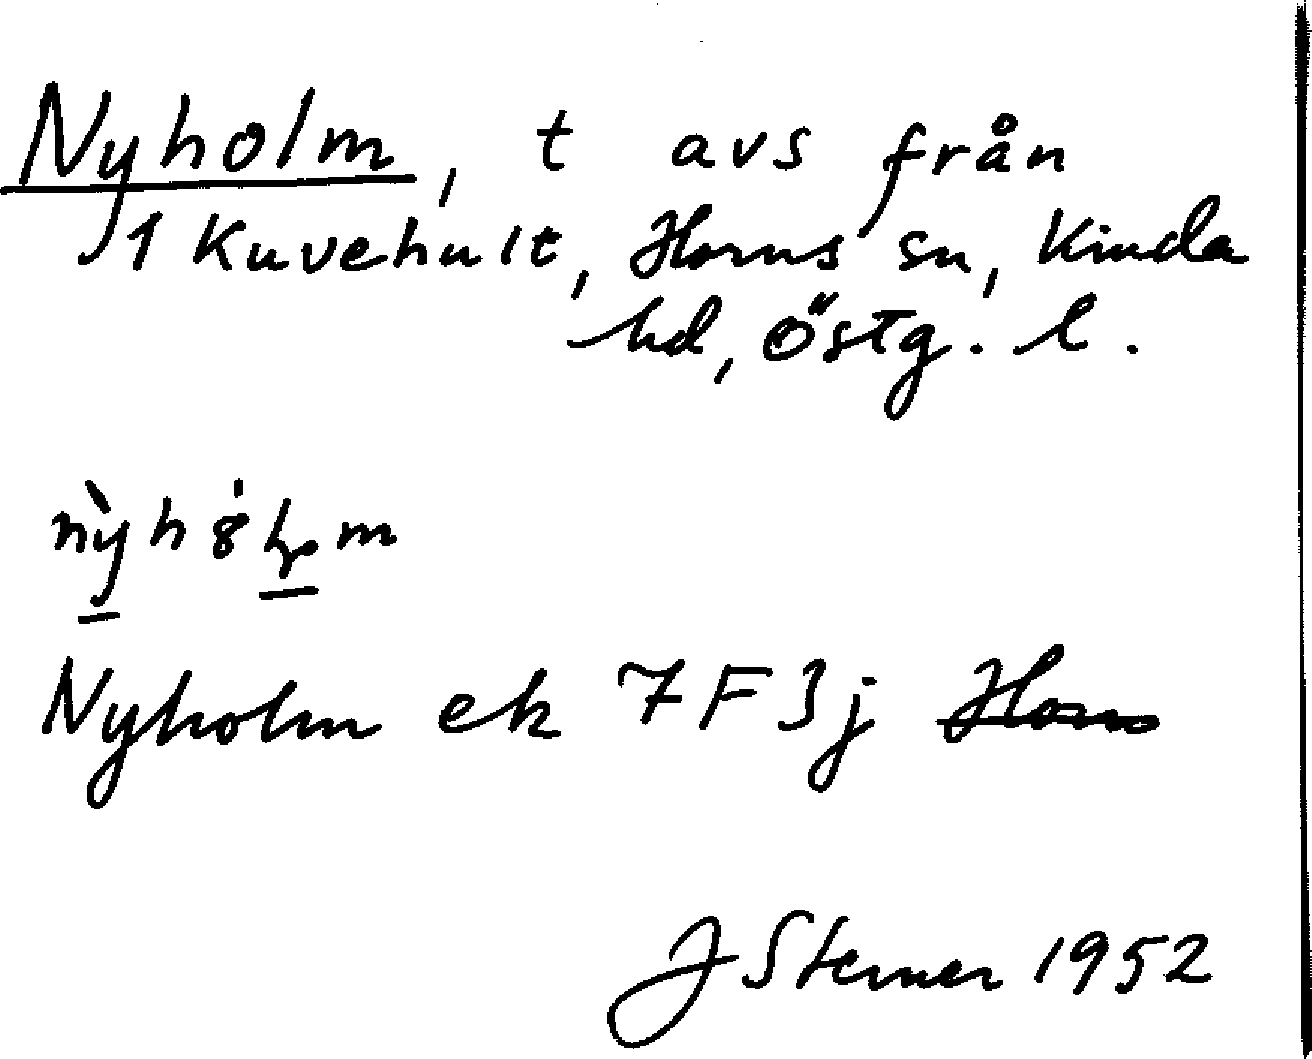 Nyholm, t avs från
1 Kuvehult, Horns sn, Kinda
hd, Östg. l.
Nyholm ek 7F3j Horns
J Sterner 1952